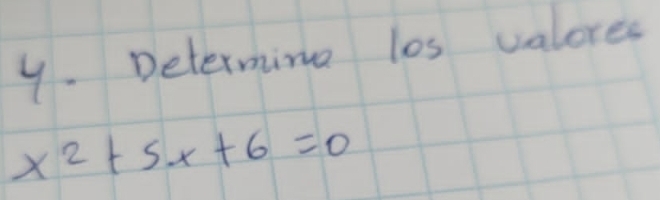 4. Determina los valores
x2+5x+6=0